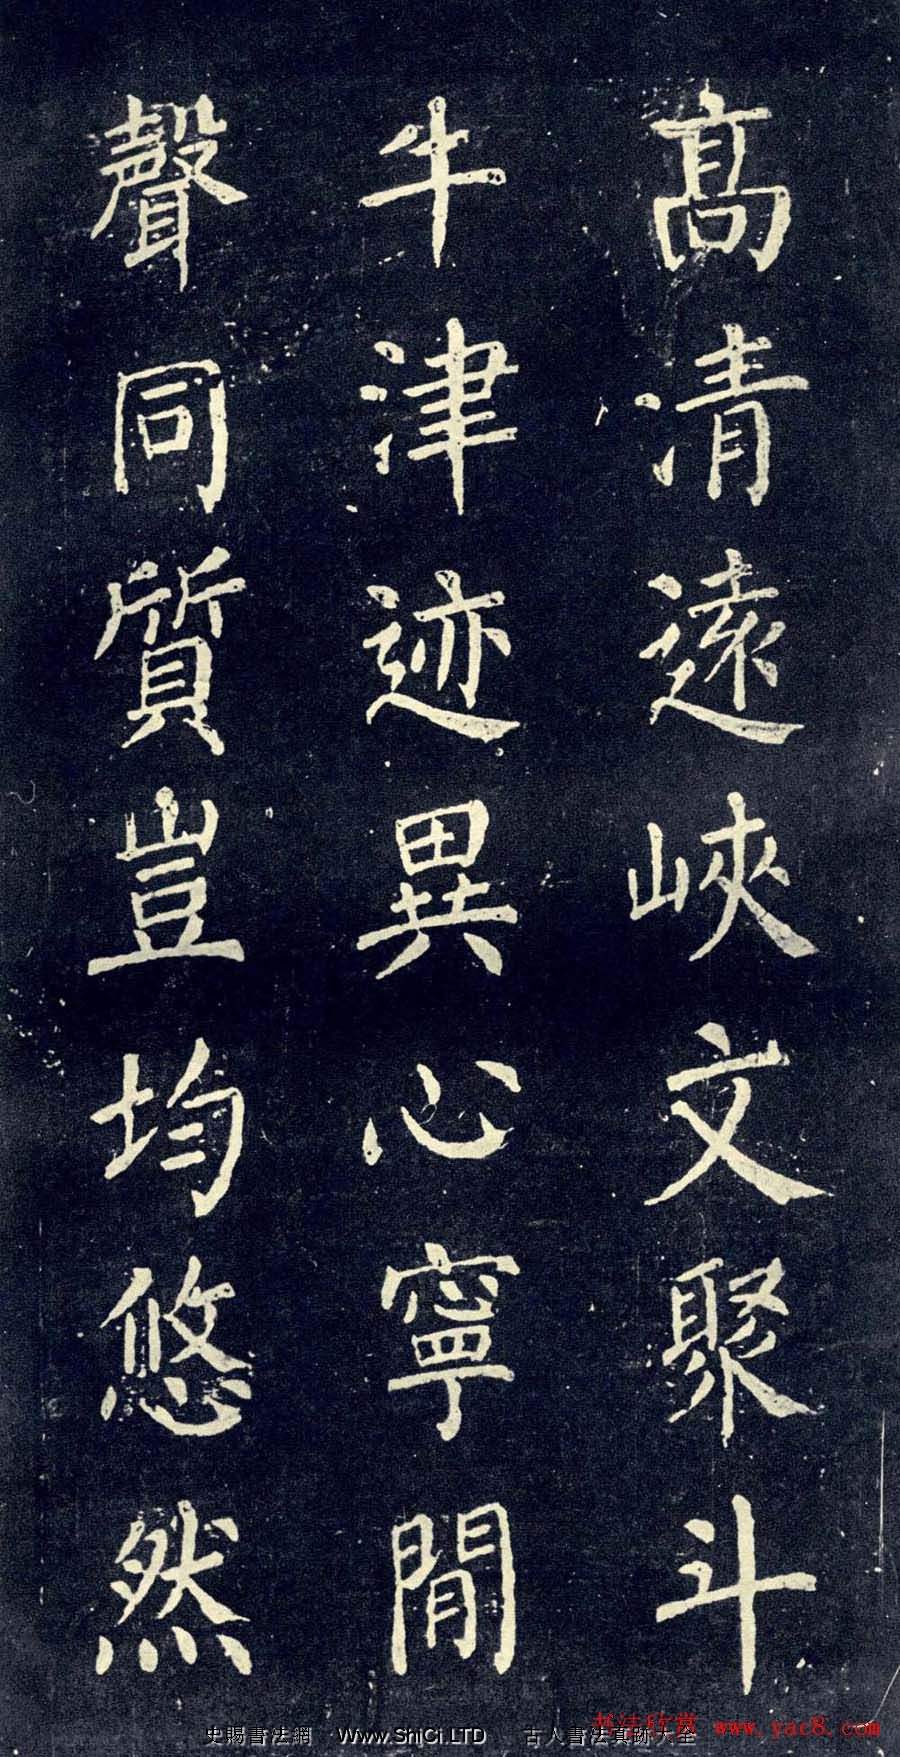 髙清遠峽文聚斗
牛津迹異心寧閒
聲同質豈均悠然
史賜書法網 Www.ShiCi.LTD 古人書法真跡大全
书法欣赏 www.yac8.com